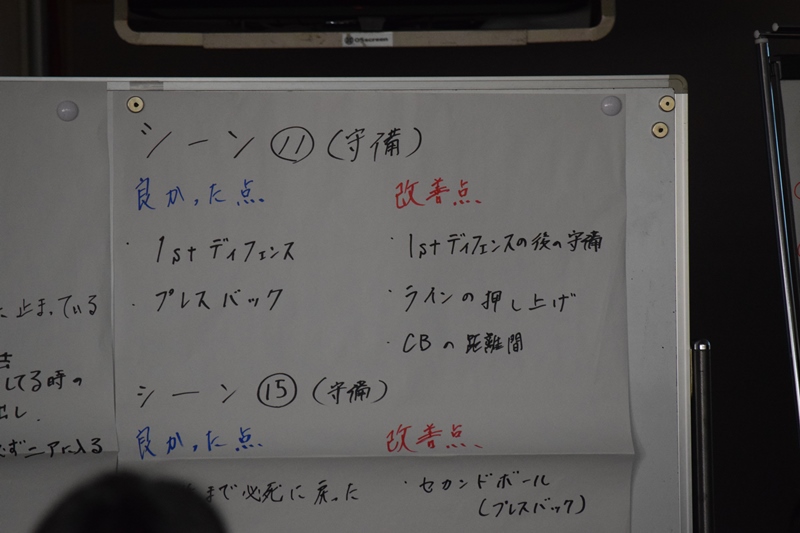 止まっている
してる時の
出し.
ニアに入る
シーン ⑪ (守備)
良かった点.
改善点.
・1stディフェンス
・プレスバック
・1stディフェンスの後の守備
・ラインの押し上げ
・CBの距離間
シーン ⑮ (守備)
良かった点.
改善点.
まで必死に戻った
・セカンドボール
(プレスバック)